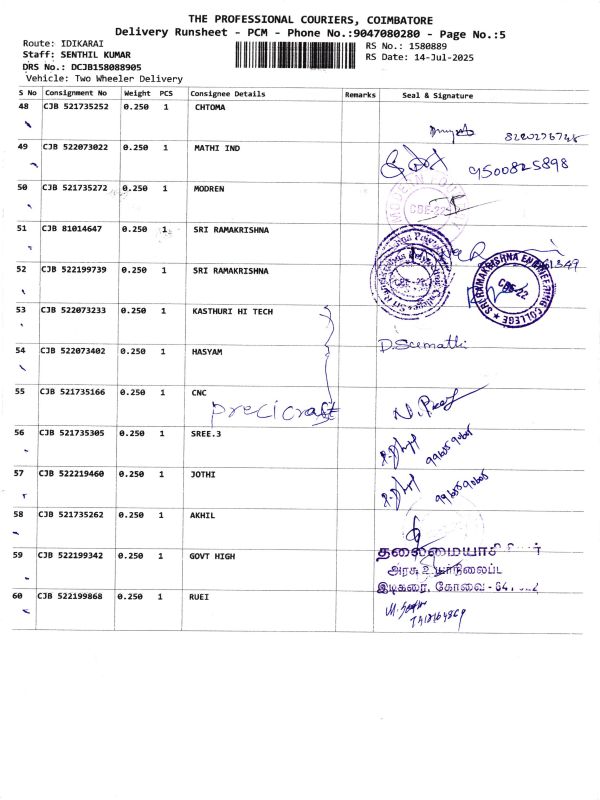 THE PROFESSIONAL COURIERS, COIMBATORE
Delivery Runsheet - PCM - Phone No.:9047080280 - Page No.:5
Route: IDIKARAI
Staff: SENTHIL KUMAR
DRS No.: DCJB158088905
Vehicle: Two Wheeler Delivery
RS No.: 1580889
RS Date: 14-Jul-2025
S No Consignment No Weight PCS Consignee Details Remarks Seal & Signature
48 CJB 521735252 0.250 1 CHTOMA
49 CJB 522073022 0.250 1 MATHI IND 9500825898
50 CJB 521735272 0.250 1 MODREN
CBE-22
51 CJB 81014647 0.250 1 SRI RAMAKRISHNA
52 CJB 522199739 0.250 1 SRI RAMAKRISHNA
SRI RAMAKRISHNA ENGINEERING COLLEGE
CBE-22
53 CJB 522073233 0.250 1 KASTHURI HI TECH
54 CJB 522073402 0.250 1 HASYAM D.Sumathi
55 CJB 521735166 0.250 1 CNC
precicraft
56 CJB 521735305 0.250 1 SREE.3
57 CJB 522219460 0.250 1 JOTHI
58 CJB 521735262 0.250 1 AKHIL
59 CJB 522199342 0.250 1 GOVT HIGH
இடிகரை, கோவை
60 CJB 522199868 0.250 1 RUEI